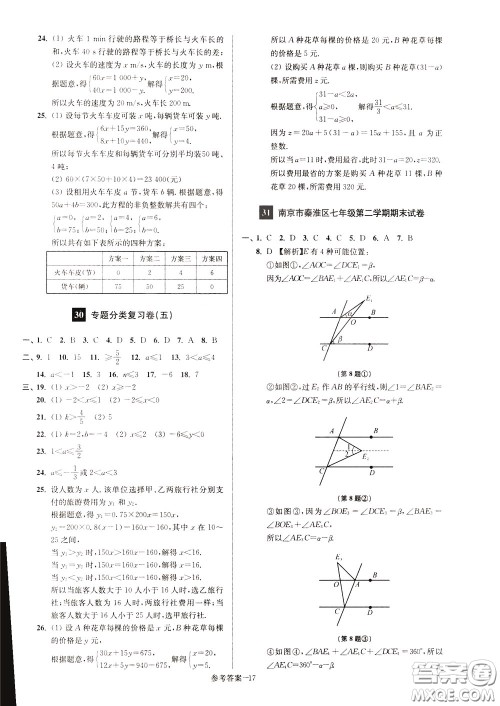 24. (1) 火车 1 min 行驶的路程等于桥长与火车长的
和,火车 40 s 行驶的路程等于桥长与火车长的差;
(2) 设火车的速度为 x m/s,火车长度为 y m,根
据题意,得 {60x=1 000+y, 40x=1 000-y. 解得 {x=20, y=200.
所以火车的速度为 20 m/s,火车长 200 m.
25. (1) 设每节火车车皮可装 x 吨,每辆汽车可装 y 吨.
根据题意,得 {6x+15y=360, 8x+10y=440. 解得 {x=50, y=4.
所以每节火车车皮和每辆货车可分别平均装 50 吨、
4 吨;
(2) 60×(7×50+10×4)=23 400(元)
(3) 设租用火车车皮 a 节,货车 b 辆.根据题意,得
50a+4b=300,此方程的非负整数解共有四个:
{a=0, b=75; {a=2, b=50; {a=4, b=25; {a=6, b=0.
所以具有如下表所示的四种方案:
方案一 方案二 方案三 方案四
火车车皮(节) 0 2 4 6
货车(辆) 75 50 25 0
30 专题分类复习卷(五)
一、1. C 2. B 3. D 4. D 5. C 6. C 7. D 8. D
二、9. 1 10. 15 11. ≥5/2 12. a≤1 13. 3<a≤4
14. a<-1 15. 3 16. n≤3 17. -6 18. 7
三、19. (1) x>-2 (2) x≥-2
20. (1) -2<x≤1 (2) -2<x≤0
21. (1) k>4/5 (2) 5
22. (1) k=2,b=-4 (2) x≤2 (3) -6≤y<0
23. 1<a≤3/2
24. a≤-1/3 或 2<a<3
25. 设人数为 x 人,该单位选择甲、乙两旅行社分别支
付的旅游费用为 y₁ 和 y₂.
根据题意,得 y₁=0.75×200x=150x,
y₂=200×0.8(x-1)=160x-160,其中 x 在 10~
25 之间.
当 y₁>y₂ 时,150x>160x-160,解得 x<16.
当 y₁=y₂ 时,150x=160x-160,解得 x=16.
当 y₁<y₂ 时,150x<160x-160,解得 x>16.
所以当旅客人数大于 10 人小于 16 人时,选乙旅行
社;当旅客人数为 16 人时,两旅行社费用一样;
当旅客人数大于 16 人小于 25 人时,选甲旅行社.
26. (1) 设 A 种花草每棵的价格是 x 元,B 种花草每棵
的价格是 y 元.
根据题意,得 {30x+15y=675, 12x+5y=940-675. 解得 {x=20, y=5.
所以 A 种花草每棵的价格是 20 元,B 种花草每棵
的价格是 5 元.
(2) 设购买 A 种花草 a 棵,则购买 B 种花草(31-a)
棵,所需费用 z 元.
根据题意,得 {31-a<2a, a≥0, 31-a≥0. 解得 31/3<a≤31.
因为 z=20a+5(31-a)=15a+155,且 a 为正
整数.
所以当 a=11 时,费用最省,此时 31-a=31-11=20.
所以费用最省的方案是购买 A 种花草 11 棵,B 种
花草 20 棵,所需费用为 320 元.
31 南京市秦淮区七年级第二学期期末试卷
一、1. C 2. D 3. C 4. D 5. A 6. D 7. B
8. D 【解析】E 有 4 种可能位置:
①如图①,∠AOC=∠DCE₁=β,
因为∠AOC=∠BAE₁+∠AE₁C,所以∠AE₁C=β-α.
E₁
A α B
O
C β D
(第 8 题①)
②如图②,过 E₂ 作 AB 的平行线,则∠1=∠BAE₂=
α,∠2=∠DCE₂=β,所以∠AE₂C=α+β.
A B
1
2 E₂
C D
(第 8 题②)
③如图③,因为∠BOE₃=∠DCE₃=β,∠BAE₃=
∠BOE₃+∠AE₃C,
所以∠AE₃C=α-β.
E₃
O A B
C D
(第 8 题③)
④如图④,∠BAE₄+∠AE₄C+∠DCE₄=360°,所
以∠AE₄C=360°-α-β.
参考答案—17
答案圈